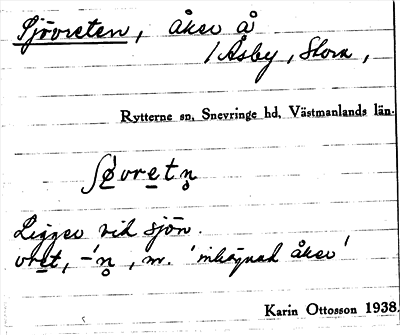 Sjövreten, åker å
/ Åsby, Stora,
Rytterne sn, Snevringe hd, Västmanlands län.
ʃø̀vretn̥
Ligger vid sjön.
vret, -'n̥, m. 'inhägnad åker'
Karin Ottosson 1938.